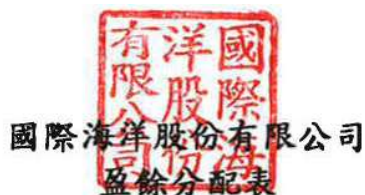 國際海洋股份有限公司
國際海洋股份有限公司
盈餘分配表